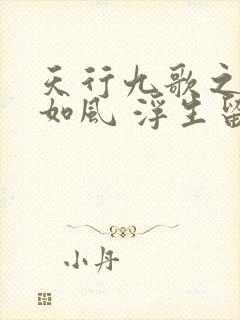 天行九歌之
如風 浮生留
小丹